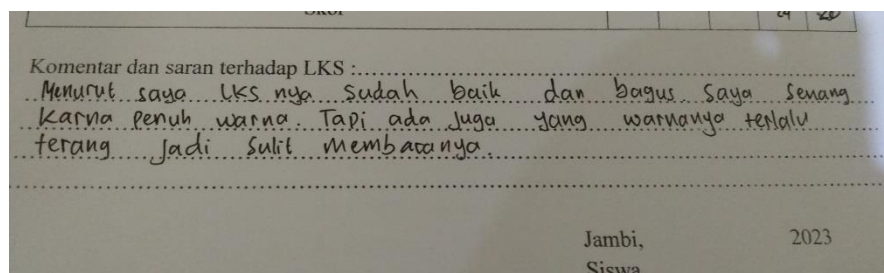 Skor 24 20
Komentar dan saran terhadap LKS :
Menurut saya LKS nya sudah baik dan bagus. Saya senang
Karna penuh warna. Tapi ada juga yang warnanya terlalu
terang jadi sulit membacanya.
Jambi, 2023
Siswa